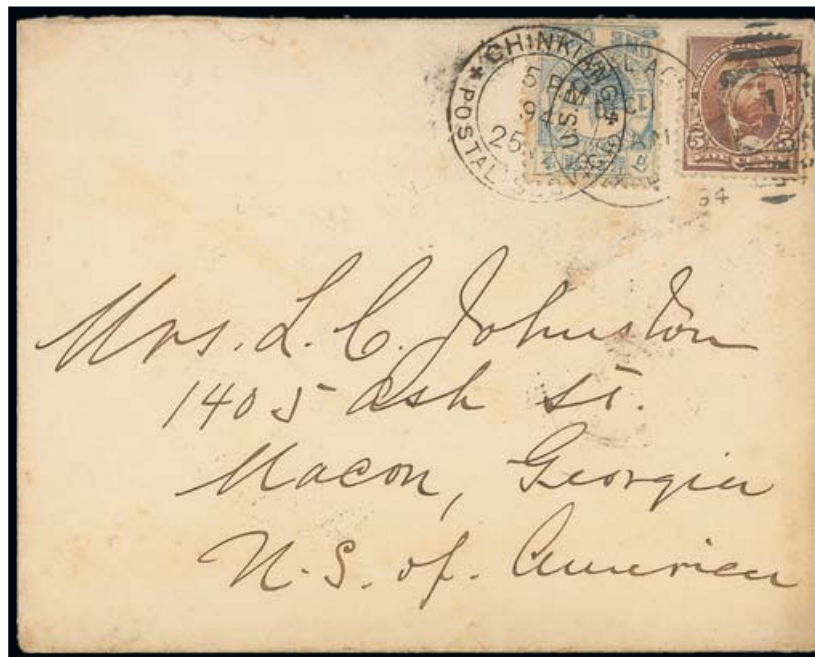 CHINKIANG
POSTAL SERVICE
5 PM
94
25
U.S.
5
94
Mrs. L. C. Johnston
1405 Ash St.
Macon, Georgia
U. S. of. America